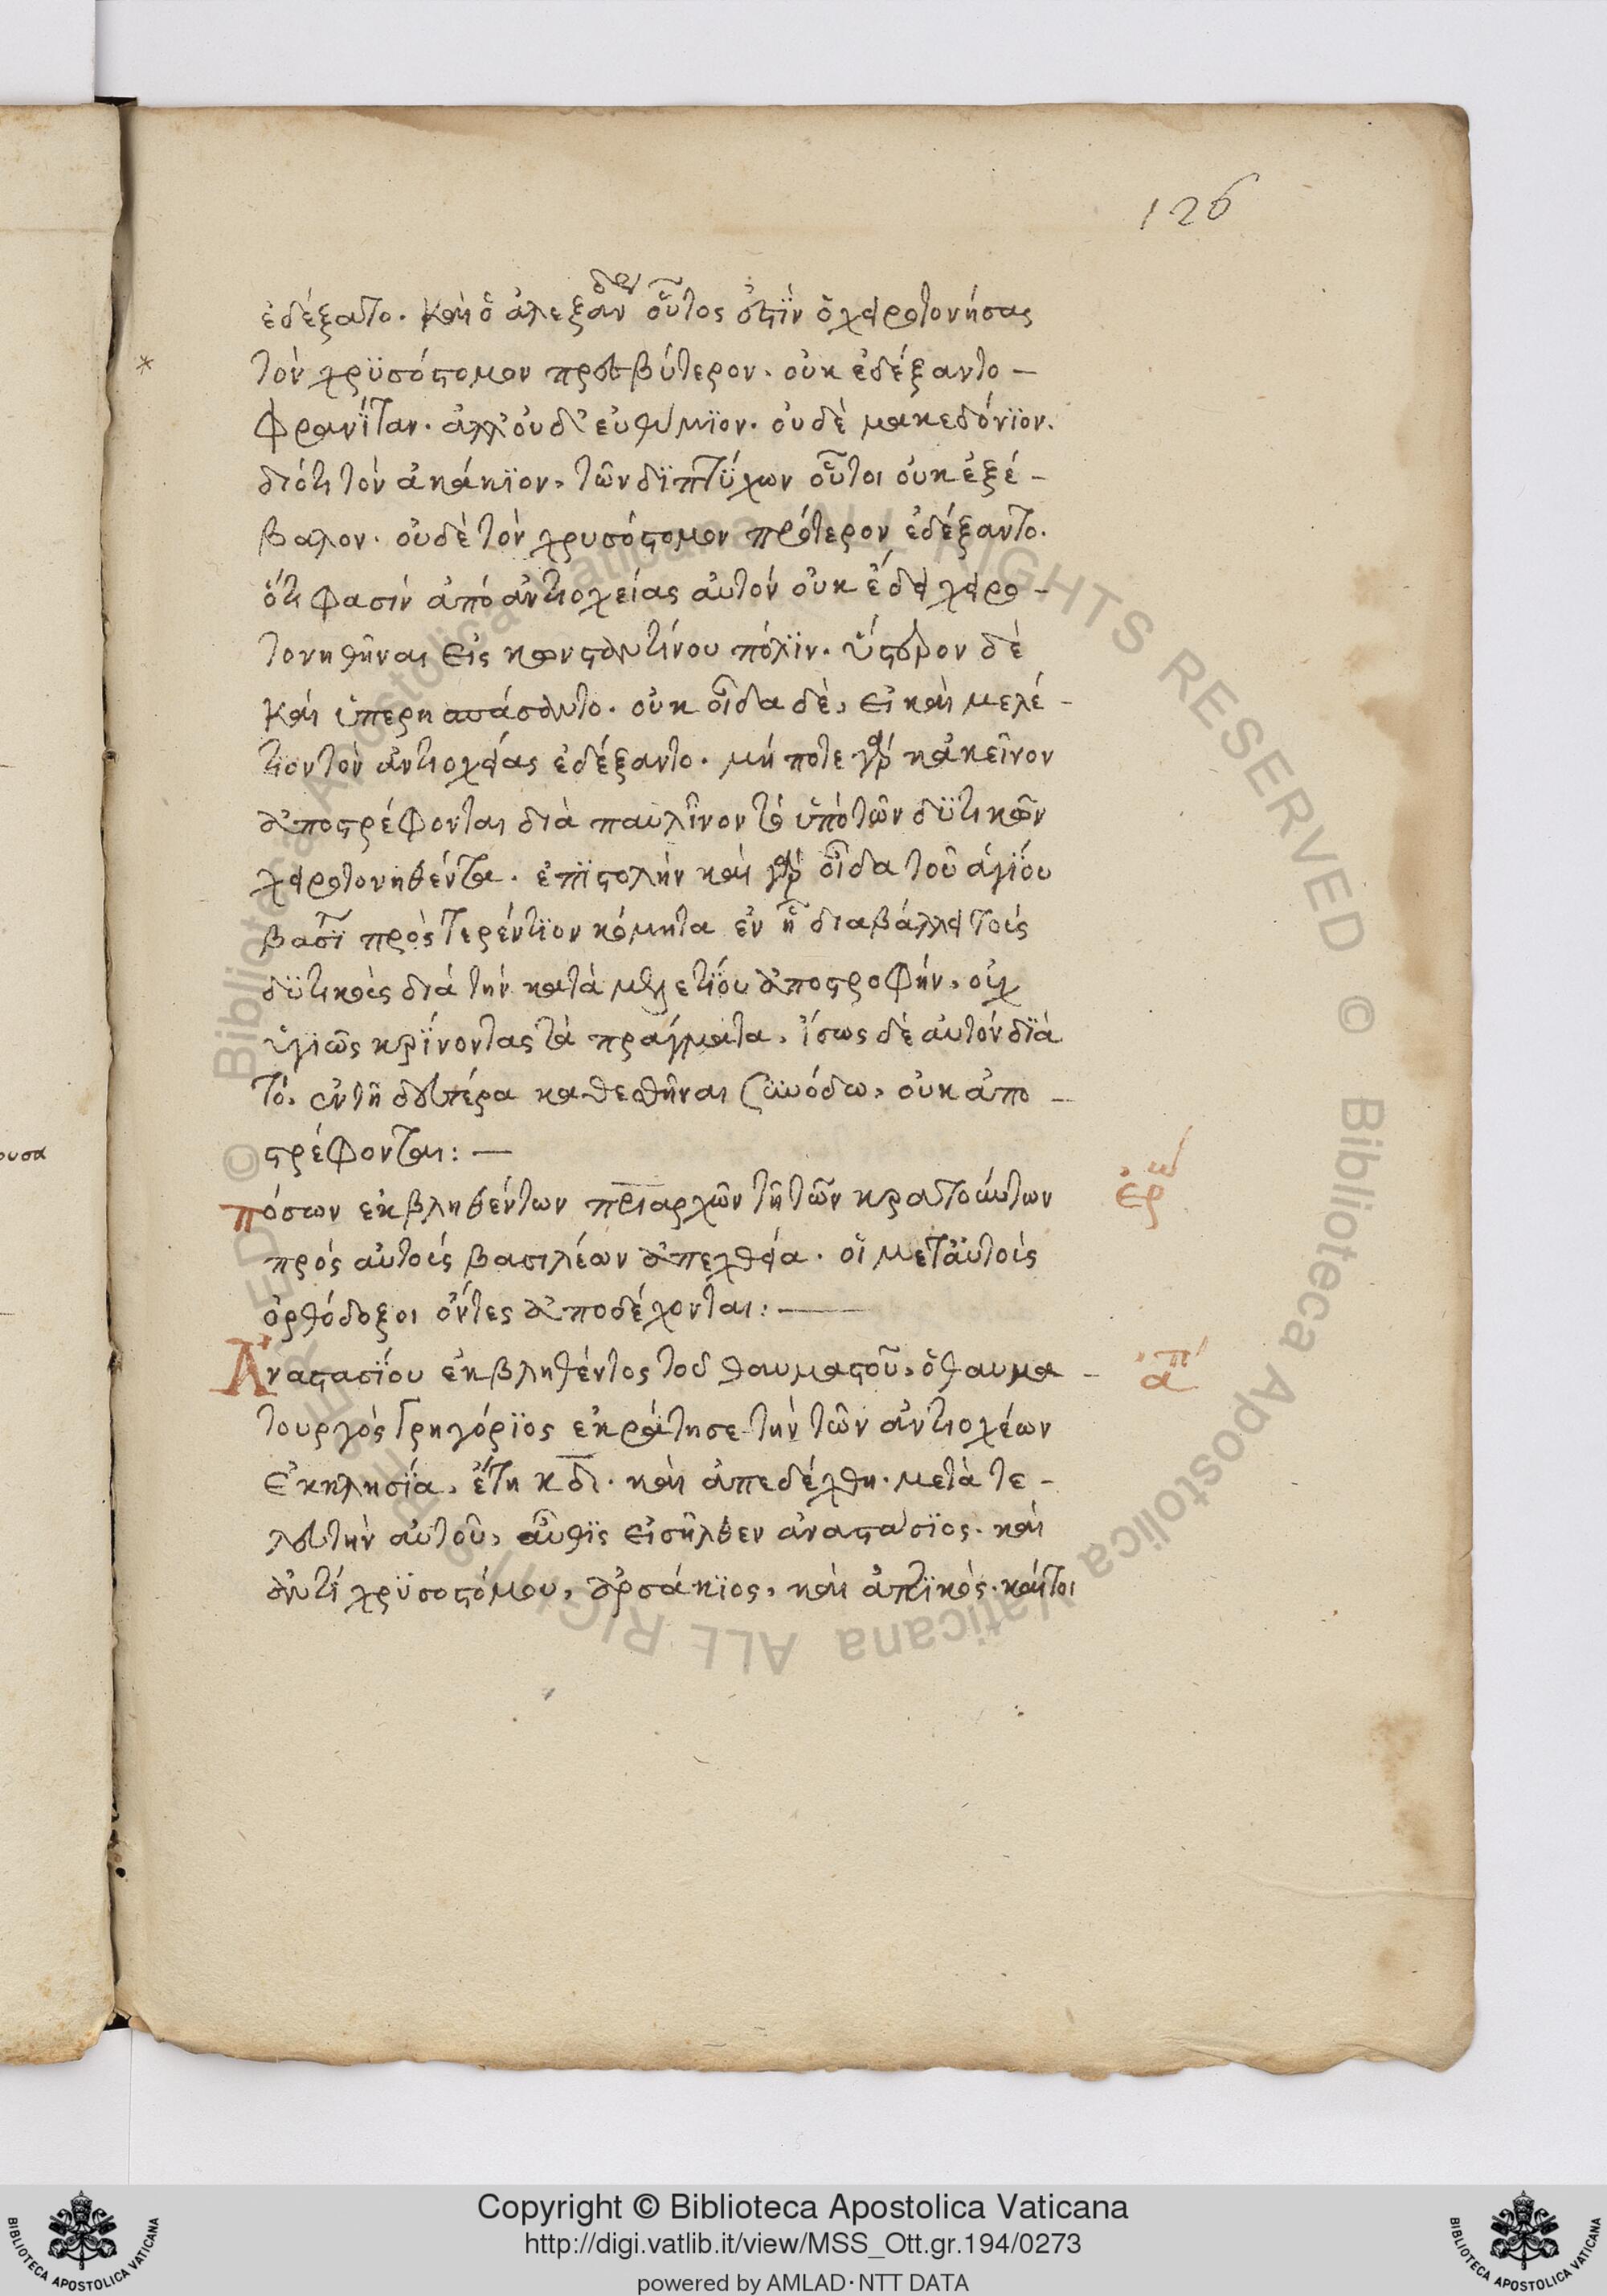 126
ἐδέξατο. καὶ ὁ ἀλεξανδρ οὗτός ἐστϊν ὁ χειροτονήσας
τὸν χρϋσόστομον πρεσβύτερον. οὐκ ἐδέξαντο –
φρανΐταν. ἀλλ' οὐδ' εὐθύμϊον. οὐδὲ μακεδόνϊον.
διότι τὸν ἀκάκϊον, τῶν δϊπτϋχων οὗτοι οὐκ ἐξέ –
βαλον. οὐδὲ τὸν χρυσόστομον πρότερον ἐδέξαντο.
ὅτι φασὶν ἀπὸ ἀντιοχείας αὐτὸν οὐκ ἔδει χειρο –
τονηθῆναι εἰς κωνσταντίνου πόλϊν. ὕστερον δὲ
καὶ ὑπερηασπάσαντο. οὐκ οἶδα δὲ, εἰ καὶ μελέ –
τιον τὸν ἀντιοχείας ἐδέξαντο. μή ποτε γὰρ κἀκεῖνον
ἀποστρέφονται διὰ παυλῖνον τὸ ὑπὸ τῶν δϋτικῶν
χειροτονηθέντα. ἐπϊστολὴν καὶ γὰρ οἶδα τοῦ ἁγίου
βασϊ πρὸς τερέντϊον κόμητα ἐν ᾗ διαβάλλει τοὺς
δϋτικοὺς διὰ τὴν κατὰ μελετίου ἀποστροφήν, οὐχ
ὑγιῶς κρΐνοντας τὰ πράγματα. ἴσως δὲ αὐτὸν δϊὰ
τὸ, ἐν τῇ δευτέρα καθεσθῆναι συνόδω, οὐκ ἀπο –
στρέφονται: –
πόσων ἐκβληθέντων πριαρχῶν τῇ τῶν κρατούντων
ἐρω
πρὸς αὐτοὺς βασιλέων ἀπεχθεία. οἱ μετ' αὐτοὺς
ὀρθόδοξοι ὄντες ἀποδέχονται: –
Ἀναστασΐου ἐκβληθέντος τοῦ θαυμαστοῦ, ὁ θαυμα –
ἀπ
τουργὸς γρηγόρϊος ἐκράτησε τὴν τῶν ἀντιοχέων
ἐκκλησΐα, ἔτη κδ. καὶ ἀπεδέχθη. μετὰ τε –
λευτὴν αὐτοῦ, αὖθϊς εἰσῆλθεν ἀναστάσϊος. καὶ
ἀντὶ χρϋσοστόμου, ἀρσάκϊος, καὶ ἀττϊκὸς. καίτοι
ουσα
Copyright © Biblioteca Apostolica Vaticana
http://digi.vatlib.it/view/MSS_Ott.gr.194/0273
powered by AMLAD·NTT DATA
BIBLIOTECA APOSTOLICA VATICANA
BIBLIOTECA APOSTOLICA VATICANA
© Biblioteca Apostolica Vaticana ALL RIGHTS RESERVED © Biblioteca Apostolica Vaticana ALL RIGHTS RESERVED